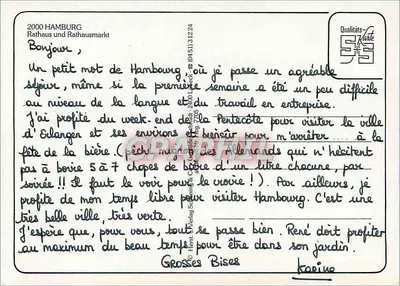 2000 HAMBURG
Rathaus und Rathausmarkt
Qualitäts-
Karte
Bonjour,
Un petit mot de Hambourg, où je passe un agréable
séjour, même si la première semaine a été un peu difficile
au niveau de la langue et du travail en entreprise.
J'ai profité du week-end de la Pentecôte pour visiter la ville
d'Erlangen et ses environs et pour m'arrêter .... à la
fête de la bière. des Allemands qui n'hésitent
pas à boire 5 à 7 chopes de bière d'un litre chacune, par
soirée!! Il faut le voir pour le croire!). Par ailleurs, je
profite de mon temps libre pour visiter Hambourg. C'est une
très belle ville, très verte.
J'espère que, pour vous, tout se passe bien. René doit profiter
au maximum du beau temps pour être dans son jardin.
GROSSES BISES
Karine